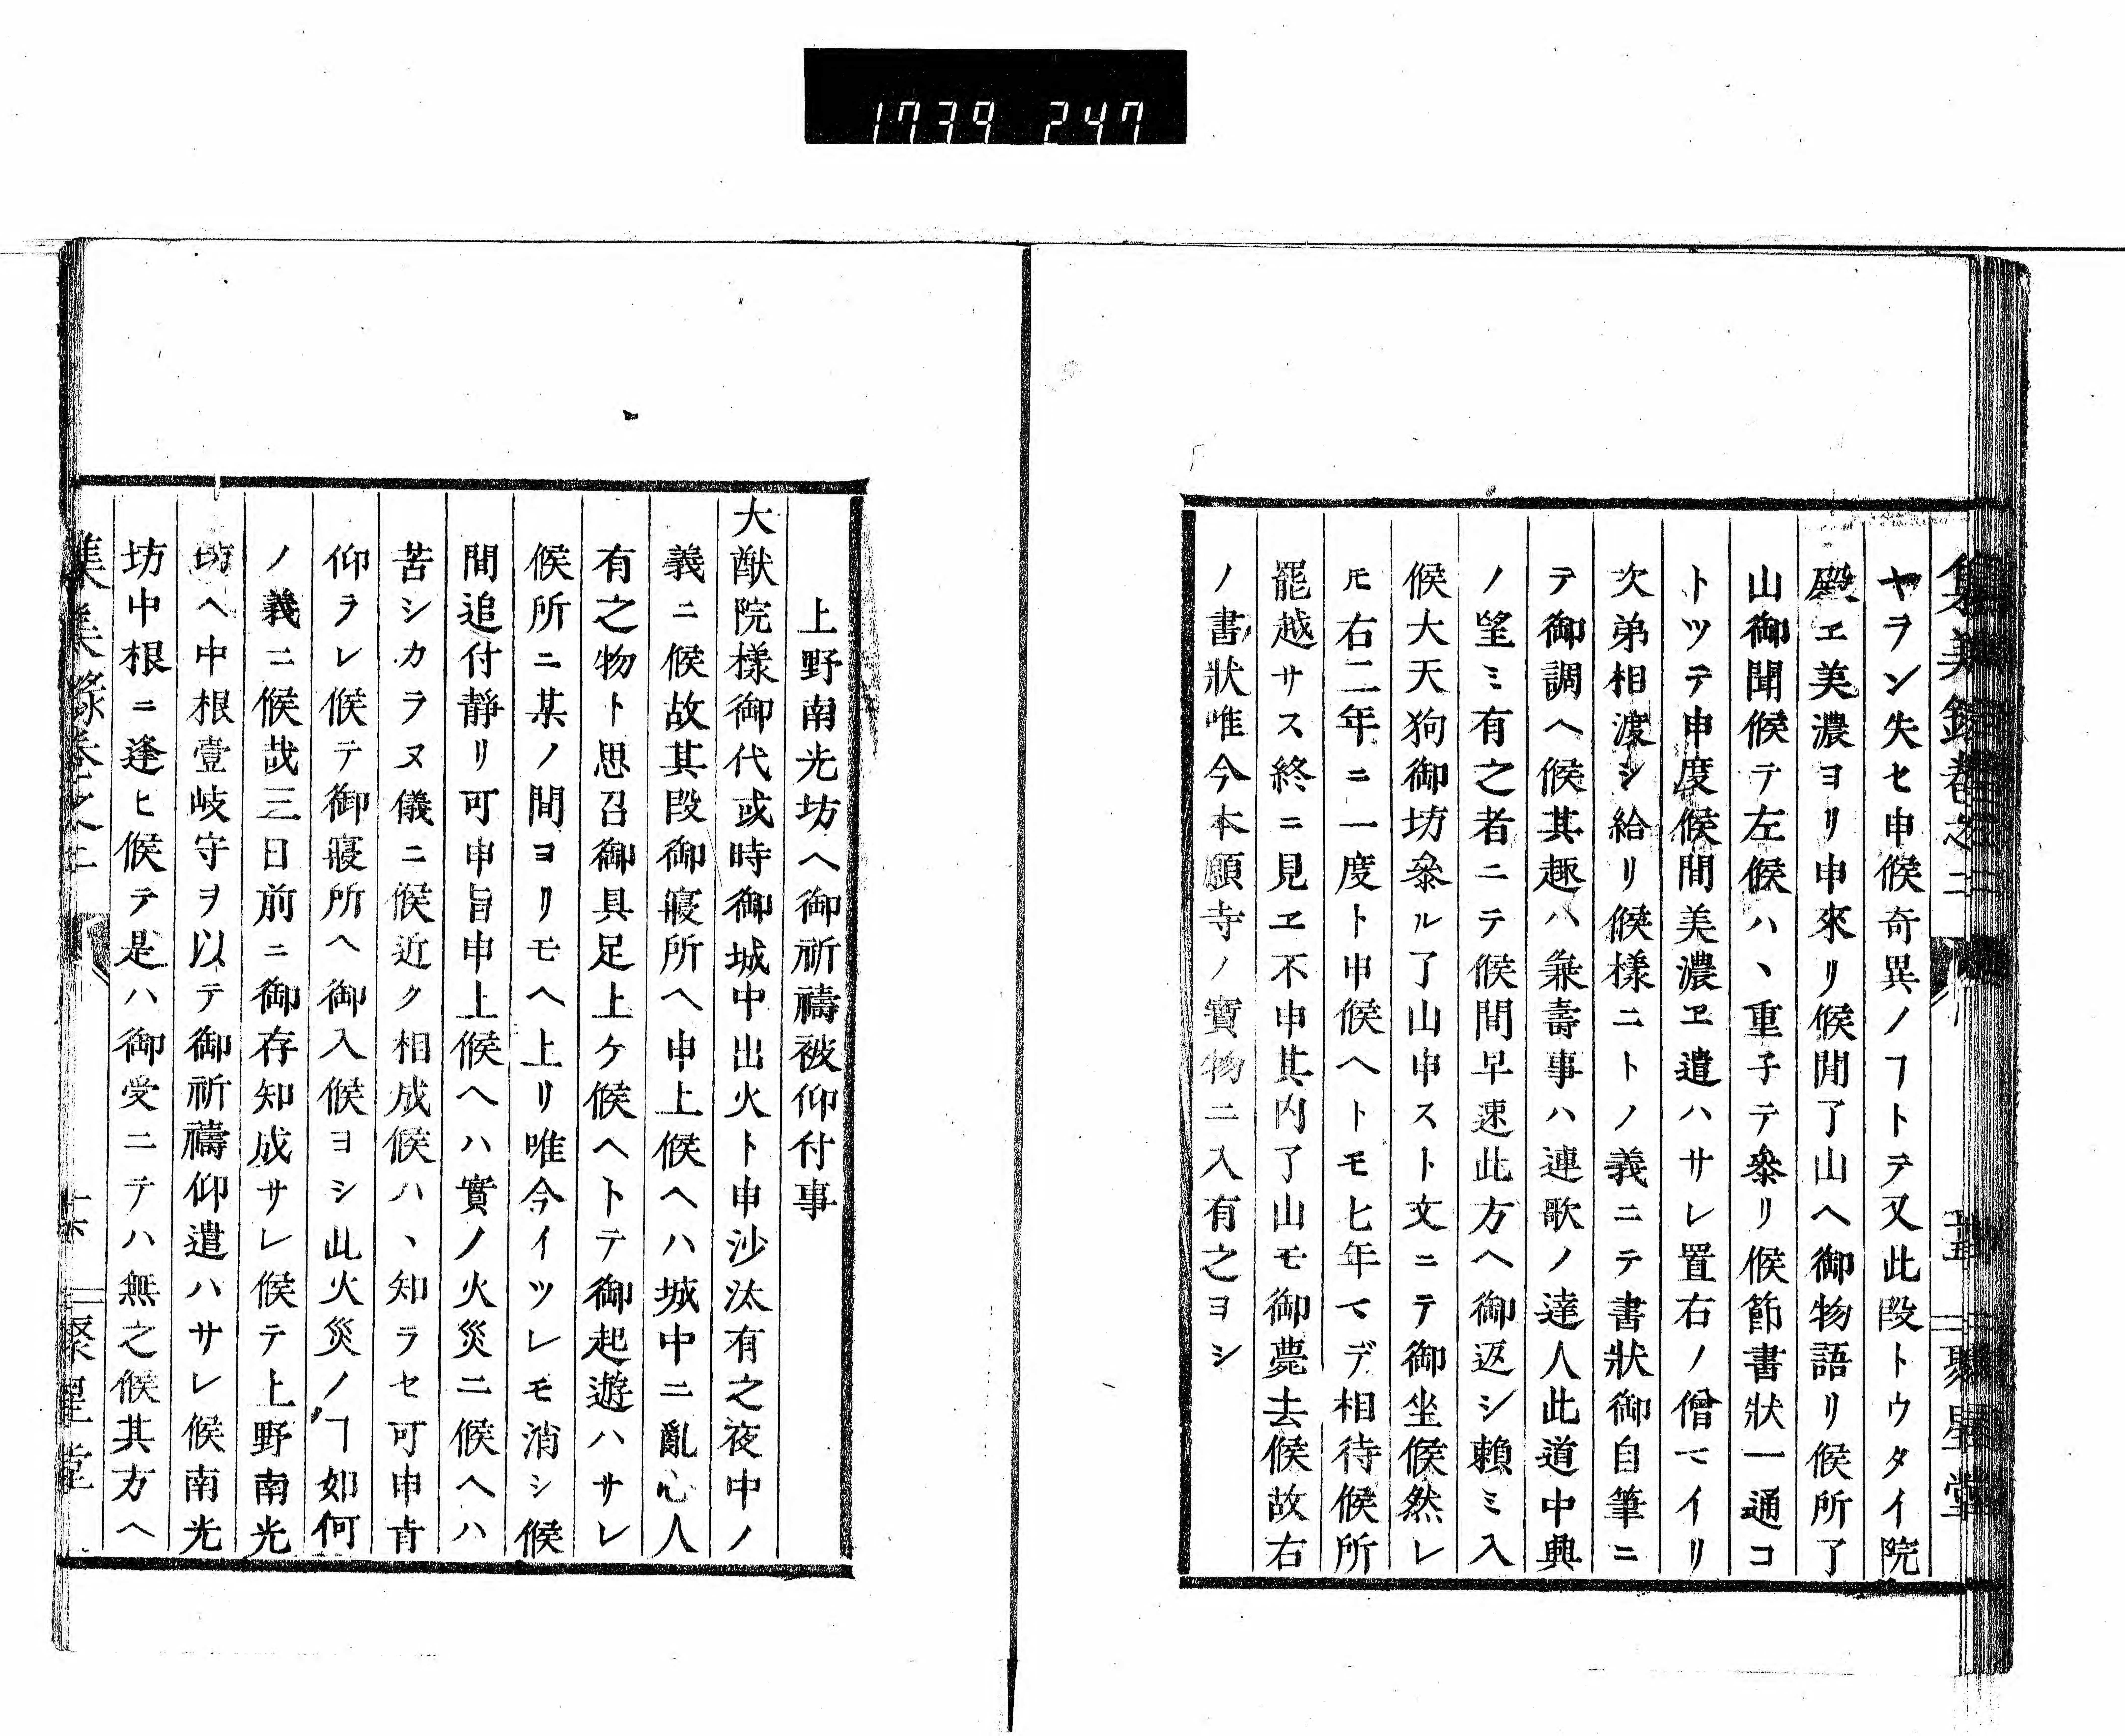 1739 247
集義錄卷之二 十五 聚星堂
ヤラン失セ申候奇異ノヿトテ又此段トウタイ院
殿エ美濃ヨリ申來リ候間了山ヘ御物語リ候所了
山御聞候テ左候ハヽ重子テ叅リ候節書狀一通コ
トツテ申度候間美濃ヱ遣ハサレ置右ノ僧マイリ
次弟相渡シ給リ候樣ニトノ義ニテ書狀御自筆ニ
テ御調ヘ候其趣ハ兼壽事ハ連歌ノ達人此道中興
ノ望ミ有之者ニテ候間早速此方ヘ御返シ賴ミ入
候大天狗御坊叅ル了山申スト文ニテ御坐候然レ
𪜈右二年ニ一度ト申候ヘトモ七年マデ相待候所
罷越サス終ニ見エ不申其内了山モ御薨去候故右
ノ書狀唯今本願寺ノ寶物ニ入有之ヨシ
上野南光坊ヘ御祈禱被仰付事
大猷院樣御代或時御城中出火ト申沙汰有之夜中ノ
義ニ候故其段御寢所ヘ申上候ヘハ城中ニ亂心人
有之物ト思召御具足上ケ候ヘトテ御起遊ハサレ
候所ニ某ノ間ヨリモヘ上リ唯今イツレモ消シ候
間追付靜リ可申旨申上候ヘハ實ノ火災ニ候ヘハ
苦シカラヌ儀ニ候近ク相成候ハヽ知ラセ可申肯
仰ラレ候テ御寢所ヘ御入候ヨシ此火災ノヿ如何
ノ義ニ候哉三日前ニ御存知成サレ候テ上野南光
坊ヘ中根壹岐守ヲ以テ御祈禱仰遣ハサレ候南光
坊中根ニ逢ヒ候テ是ハ御受ニテハ無之候其方ヘ
卷之二 十六 聚星堂